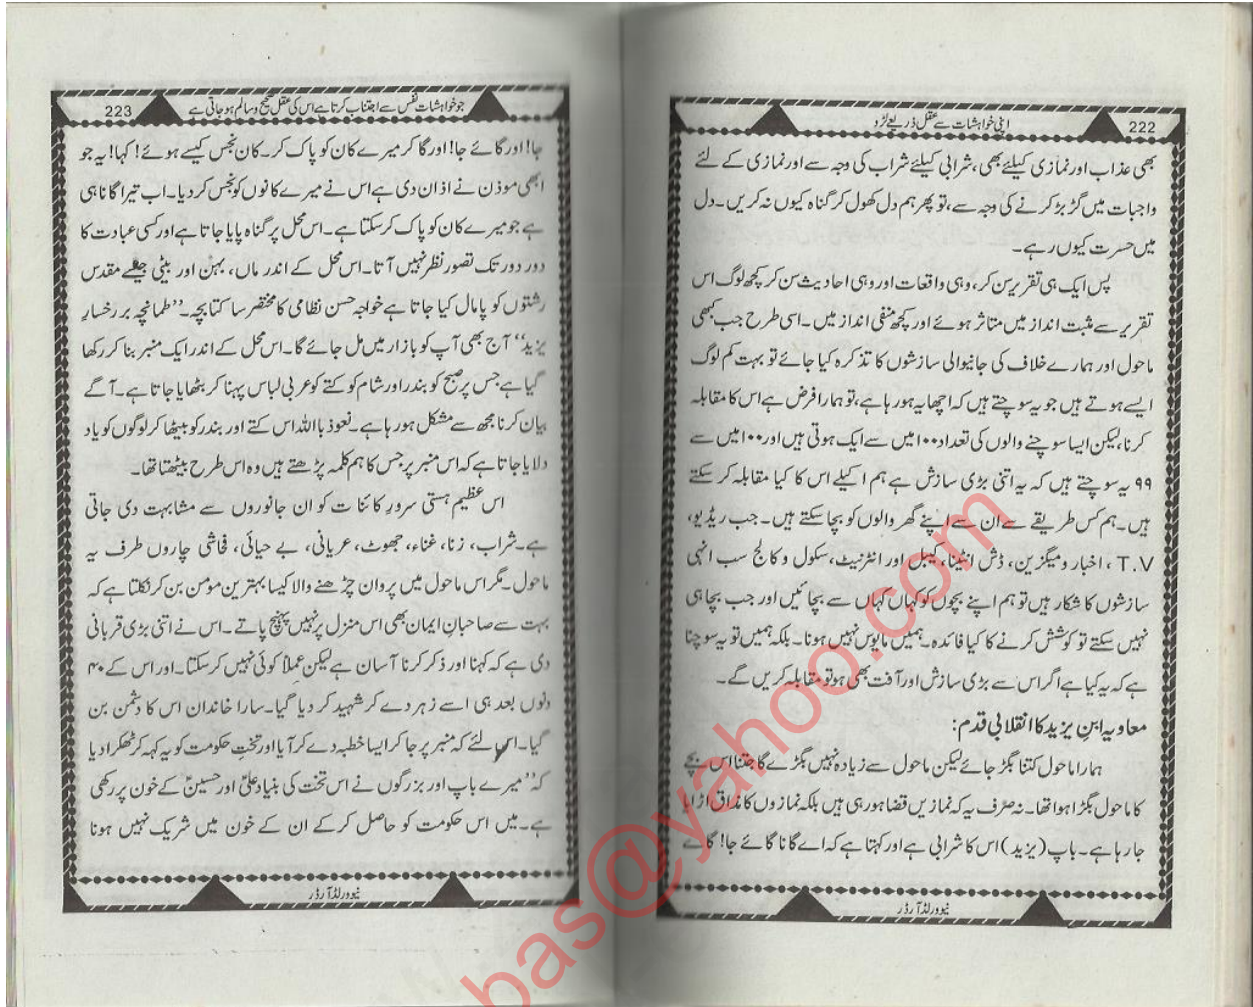 222
اپنی خواہشات سے عقل ذریعے لڑو
بھی عذاب اور نمازی کیلئے بھی، شرابی کیلئے شراب کی وجہ سے اور نمازی کے لئے
واجبات میں گڑبڑ کرنے کی وجہ سے، تو پھر ہم دل کھول کر گناہ کیوں نہ کریں۔ دل
میں حسرت کیوں رہے۔
پس ایک ہی تقریر سن کر، وہی واقعات اور وہی احادیث سن کر کچھ لوگ اس
تقریر سے مثبت انداز میں متاثر ہوئے اور کچھ منفی انداز میں۔ اسی طرح جب کبھی
ماحول اور ہمارے خلاف کی جانیوالی سازشوں کا تذکرہ کیا جائے تو بہت کم لوگ
ایسے ہوتے ہیں جو یہ سوچتے ہیں کہ اچھا یہ ہو رہا ہے، تو ہمارا فرض ہے اس کا مقابلہ
کرنا، لیکن ایسا سوچنے والوں کی تعداد ۱۰۰ میں سے ایک ہوتی ہیں اور ۱۰۰ میں سے
۹۹ یہ سوچتے ہیں کہ یہ اتنی بڑی سازش ہے ہم اکیلے اس کا کیا مقابلہ کر سکتے
ہیں۔ ہم کس طریقے سے ان سے اپنے گھر والوں کو بچا سکتے ہیں۔ جب ریڈیو،
T.V ، اخبار و میگزین، ڈش انٹینا، کیبل اور انٹرنیٹ، سکول و کالج سب انہی
سازشوں کا شکار ہیں تو ہم اپنے بچوں کو کہاں کہاں سے بچائیں اور جب بچا ہی
نہیں سکتے تو کوشش کرنے کا کیا فائدہ۔ ہمیں مایوس نہیں ہونا۔ بلکہ ہمیں تو یہ سوچنا
ہے کہ یہ کیا ہے اگر اس سے بڑی سازش اور آفت بھی ہو تو مقابلہ کریں گے۔
معاویہ ابن یزید کا انقلابی قدم:
ہمارا ماحول کتنا بگڑ جائے لیکن ماحول سے زیادہ نہیں بگڑے گا جتنا اس بچے
کا ماحول بگڑا ہوا تھا۔ نہ صرف یہ کہ نمازیں قضا ہو رہی ہیں بلکہ نمازوں کا مذاق اڑایا
جا رہا ہے۔ باپ (یزید) اس کا شرابی ہے اور کہتا ہے کہ اے گانا گائے جا! گائے
نیو ورلڈ آرڈر
جو خواہشات نفس سے اجتناب کرتا ہے اس کی عقل صحیح و سالم ہو جاتی ہے
223
جا! اور گائے جا! اور گا کر میرے کان کو پاک کر۔ کان نجس کیسے ہوئے! کہا! یہ جو
ابھی موذن نے اذان دی ہے اس نے میرے کانوں کو نجس کر دیا۔ اب تیرا گانا ہی
ہے جو میرے کان کو پاک کر سکتا ہے۔ اس محل پر گناہ پایا جاتا ہے اور کسی عبادت کا
دور دور تک تصور نظر نہیں آتا۔ اس محل کے اندر ماں، بہن اور بیٹی جیسے مقدس
رشتوں کو پامال کیا جاتا ہے خواجہ حسن نظامی کا مختصر سا کتابچہ۔ ”طمانچہ بر رخسار
یزید“ آج بھی آپ کو بازار میں مل جائے گا۔ اس محل کے اندر ایک منبر بنا کر رکھا
گیا ہے جس پر صبح کو بندر اور شام کو کتے کو عربی لباس پہنا کر بٹھایا جاتا ہے۔ آگے
بیان کرنا مجھ سے مشکل ہو رہا ہے۔ نعوذ باللہ اس کتے اور بندر کو بیٹھا کر لوگوں کو یاد
دلایا جاتا ہے کہ اس منبر پر جس کا ہم کلمہ پڑھتے ہیں وہ اس طرح بیٹھتا تھا۔
اس عظیم ہستی سرورِ کائنات کو ان جانوروں سے مشابہت دی جاتی
ہے۔ شراب، زنا، غناء، جھوٹ، عریانی، بے حیائی، فحاشی چاروں طرف یہ
ماحول۔ مگر اس ماحول میں پروان چڑھنے والا کیسا بہترین مومن بن کر نکلتا ہے کہ
بہت سے صاحبانِ ایمان بھی اس منزل پر نہیں پہنچ پاتے۔ اس نے اتنی بڑی قربانی
دی ہے کہ کہنا اور ذکر کرنا آسان ہے لیکن عملاً کوئی نہیں کر سکتا۔ اور اس کے ۴۰
دنوں بعد ہی اسے زہر دے کر شہید کر دیا گیا۔ سارا خاندان اس کا دشمن بن
گیا۔ اس لئے کہ منبر پر جا کر ایسا خطبہ دے کر آیا اور تختِ حکومت کو یہ کہہ کر ٹھکرا دیا
کہ ”میرے باپ اور بزرگوں نے اس تخت کی بنیاد علیؑ اور حسینؑ کے خون پر رکھی
ہے۔ میں اس حکومت کو حاصل کر کے ان کے خون میں شریک نہیں ہونا
نیو ورلڈ آرڈر
bas@yahoo.com